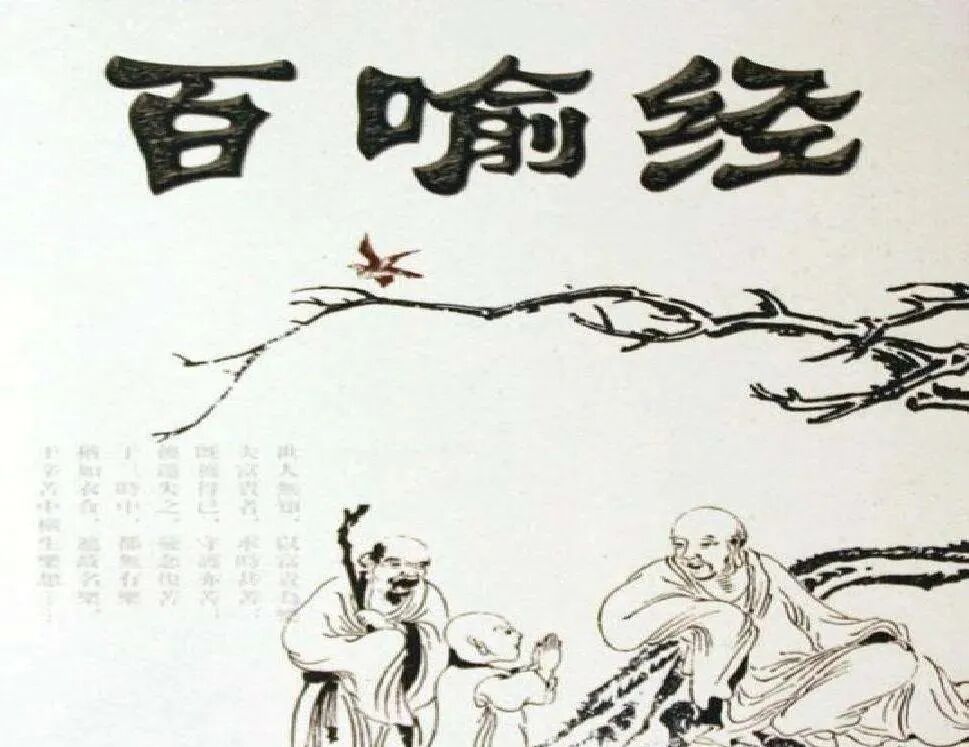 百喻经
世人無知、以富貴為樂
夫富貴者、求時甚苦、
既獲得已、守護亦苦、
後還失之、憂念復苦
于三時中、都無有樂
猶如衣食、遮故名樂、
于辛苦中橫生樂想……